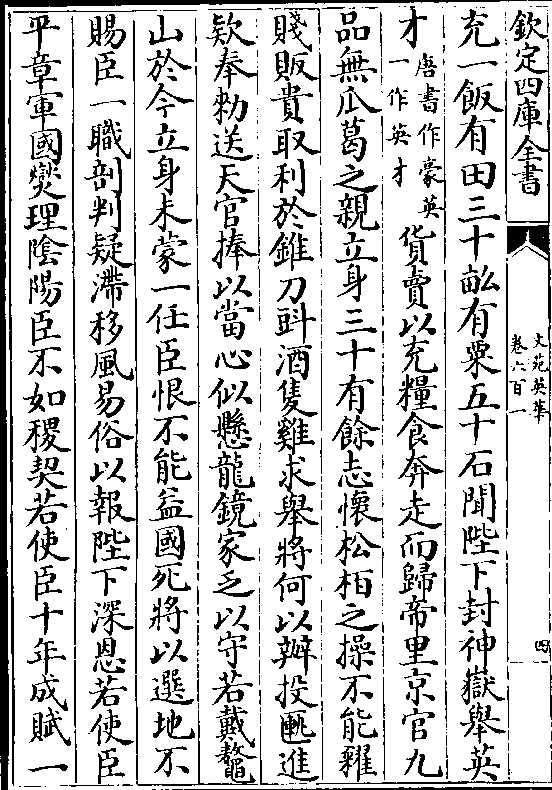 欽定四庫全書
文苑英華
卷六百一
四
充一飯有田三十畝有粟五十石聞陛下封神嶽舉英
才唐書作豪英一作英才貨賣以充糧食奔走而歸帝里京官九
品無瓜葛之親立身三十有餘志懷松柏之操不能雜
賤販貴取利於錐刀㪷酒隻雞求舉將何以辦投匭進
欵奉勑送天官捧以當心似懸龍鏡家乏以守若戴鼇
山於今立身未蒙一任臣恨不能益國死將以選地不
賜臣一職剖判疑滯移風易俗以報陛下深恩若使臣
平章軍國燮理陰陽臣不如稷契若使臣十年成賦一